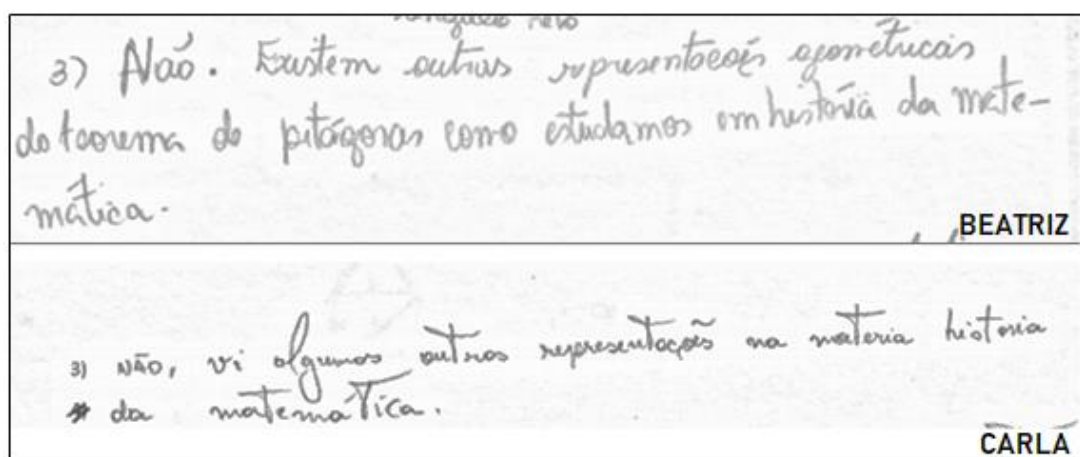 3) Não. Existem outras representacoẽs geometricas
do teorema de pitágoras como estudamos em história da mate-
mática.
BEATRIZ
3) NÃO, vi algumas outras representações na materia historia
da matemática.
CARLA